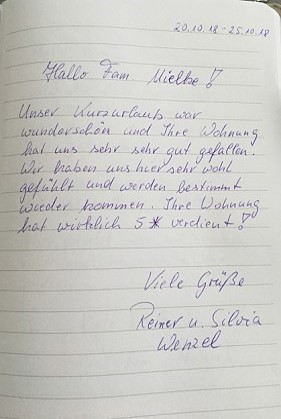 20.10.18-25.10.18
Hallo Fam Mielke!
Unser Kurzurlaub war
wunderschön und Ihre Wohnung
hat uns sehr sehr gut gefallen.
Wir haben uns hier sehr wohl
gefühlt und werden bestimmt
wieder kommen. Ihre Wohnung
hat wirklich 5* verdient!
Viele Grüße
Reiner u. Silvia
Wenzel